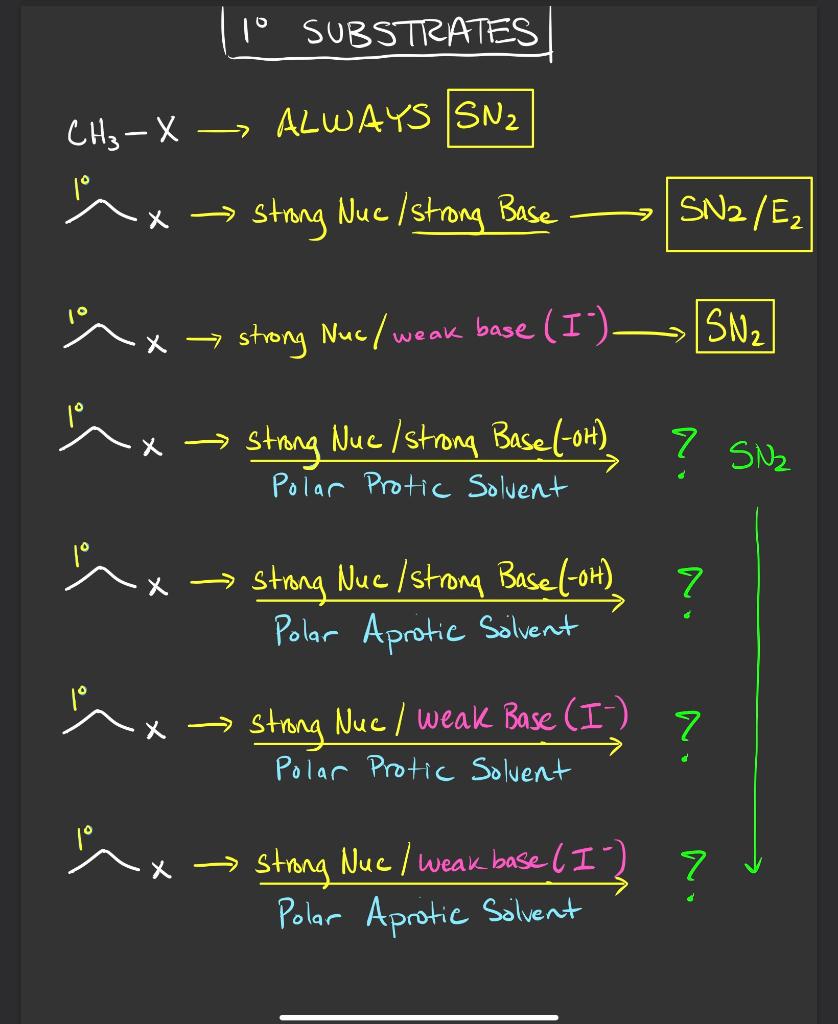 1° SUBSTRATES
CH₃–X → ALWAYS SN₂
1° X → strong Nuc / strong Base → SN₂/E₂
1° X → strong Nuc / weak base (I⁻) → SN₂
1° X → strong Nuc / strong Base (-OH) ? SN₂
Polar Protic Solvent
1° X → strong Nuc / strong Base (-OH) ?
Polar Aprotic Solvent
1° X → strong Nuc / weak Base (I⁻) ?
Polar Protic Solvent
1° X → strong Nuc / weak base (I⁻) ?
Polar Aprotic Solvent